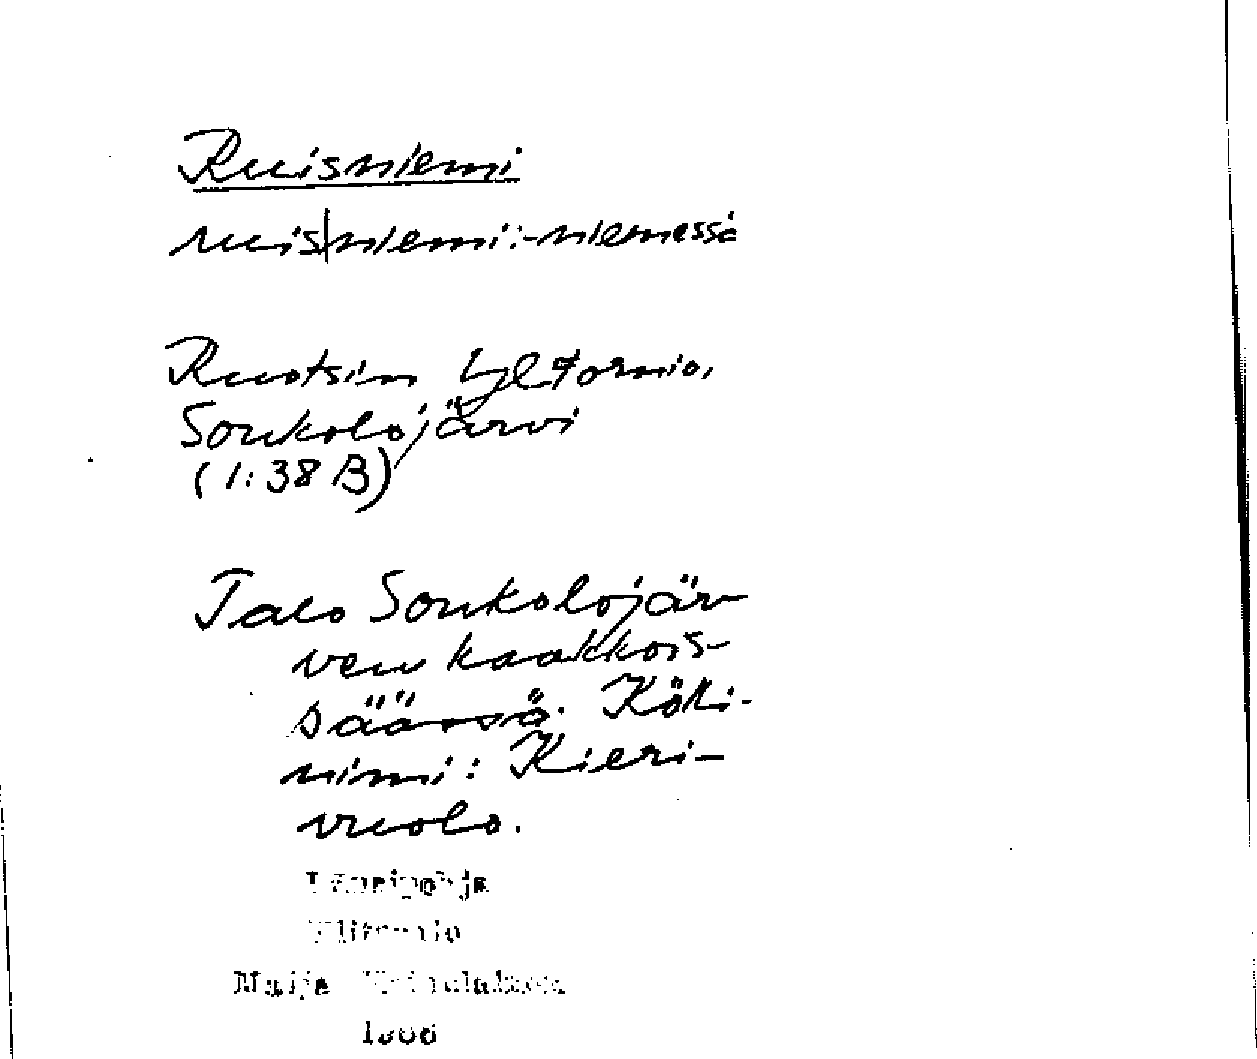 Ruisniemi
ruis|niemi:-niemessä
Ruotsin Ylitornio,
Soukolojärvi
(1:38 B)
Talo Soukolojär-
ven kaakkois-
päässä. Köli-
nimi: Kieri-
vuolo.
Länsipohja
Ylitornio
Maija
1966